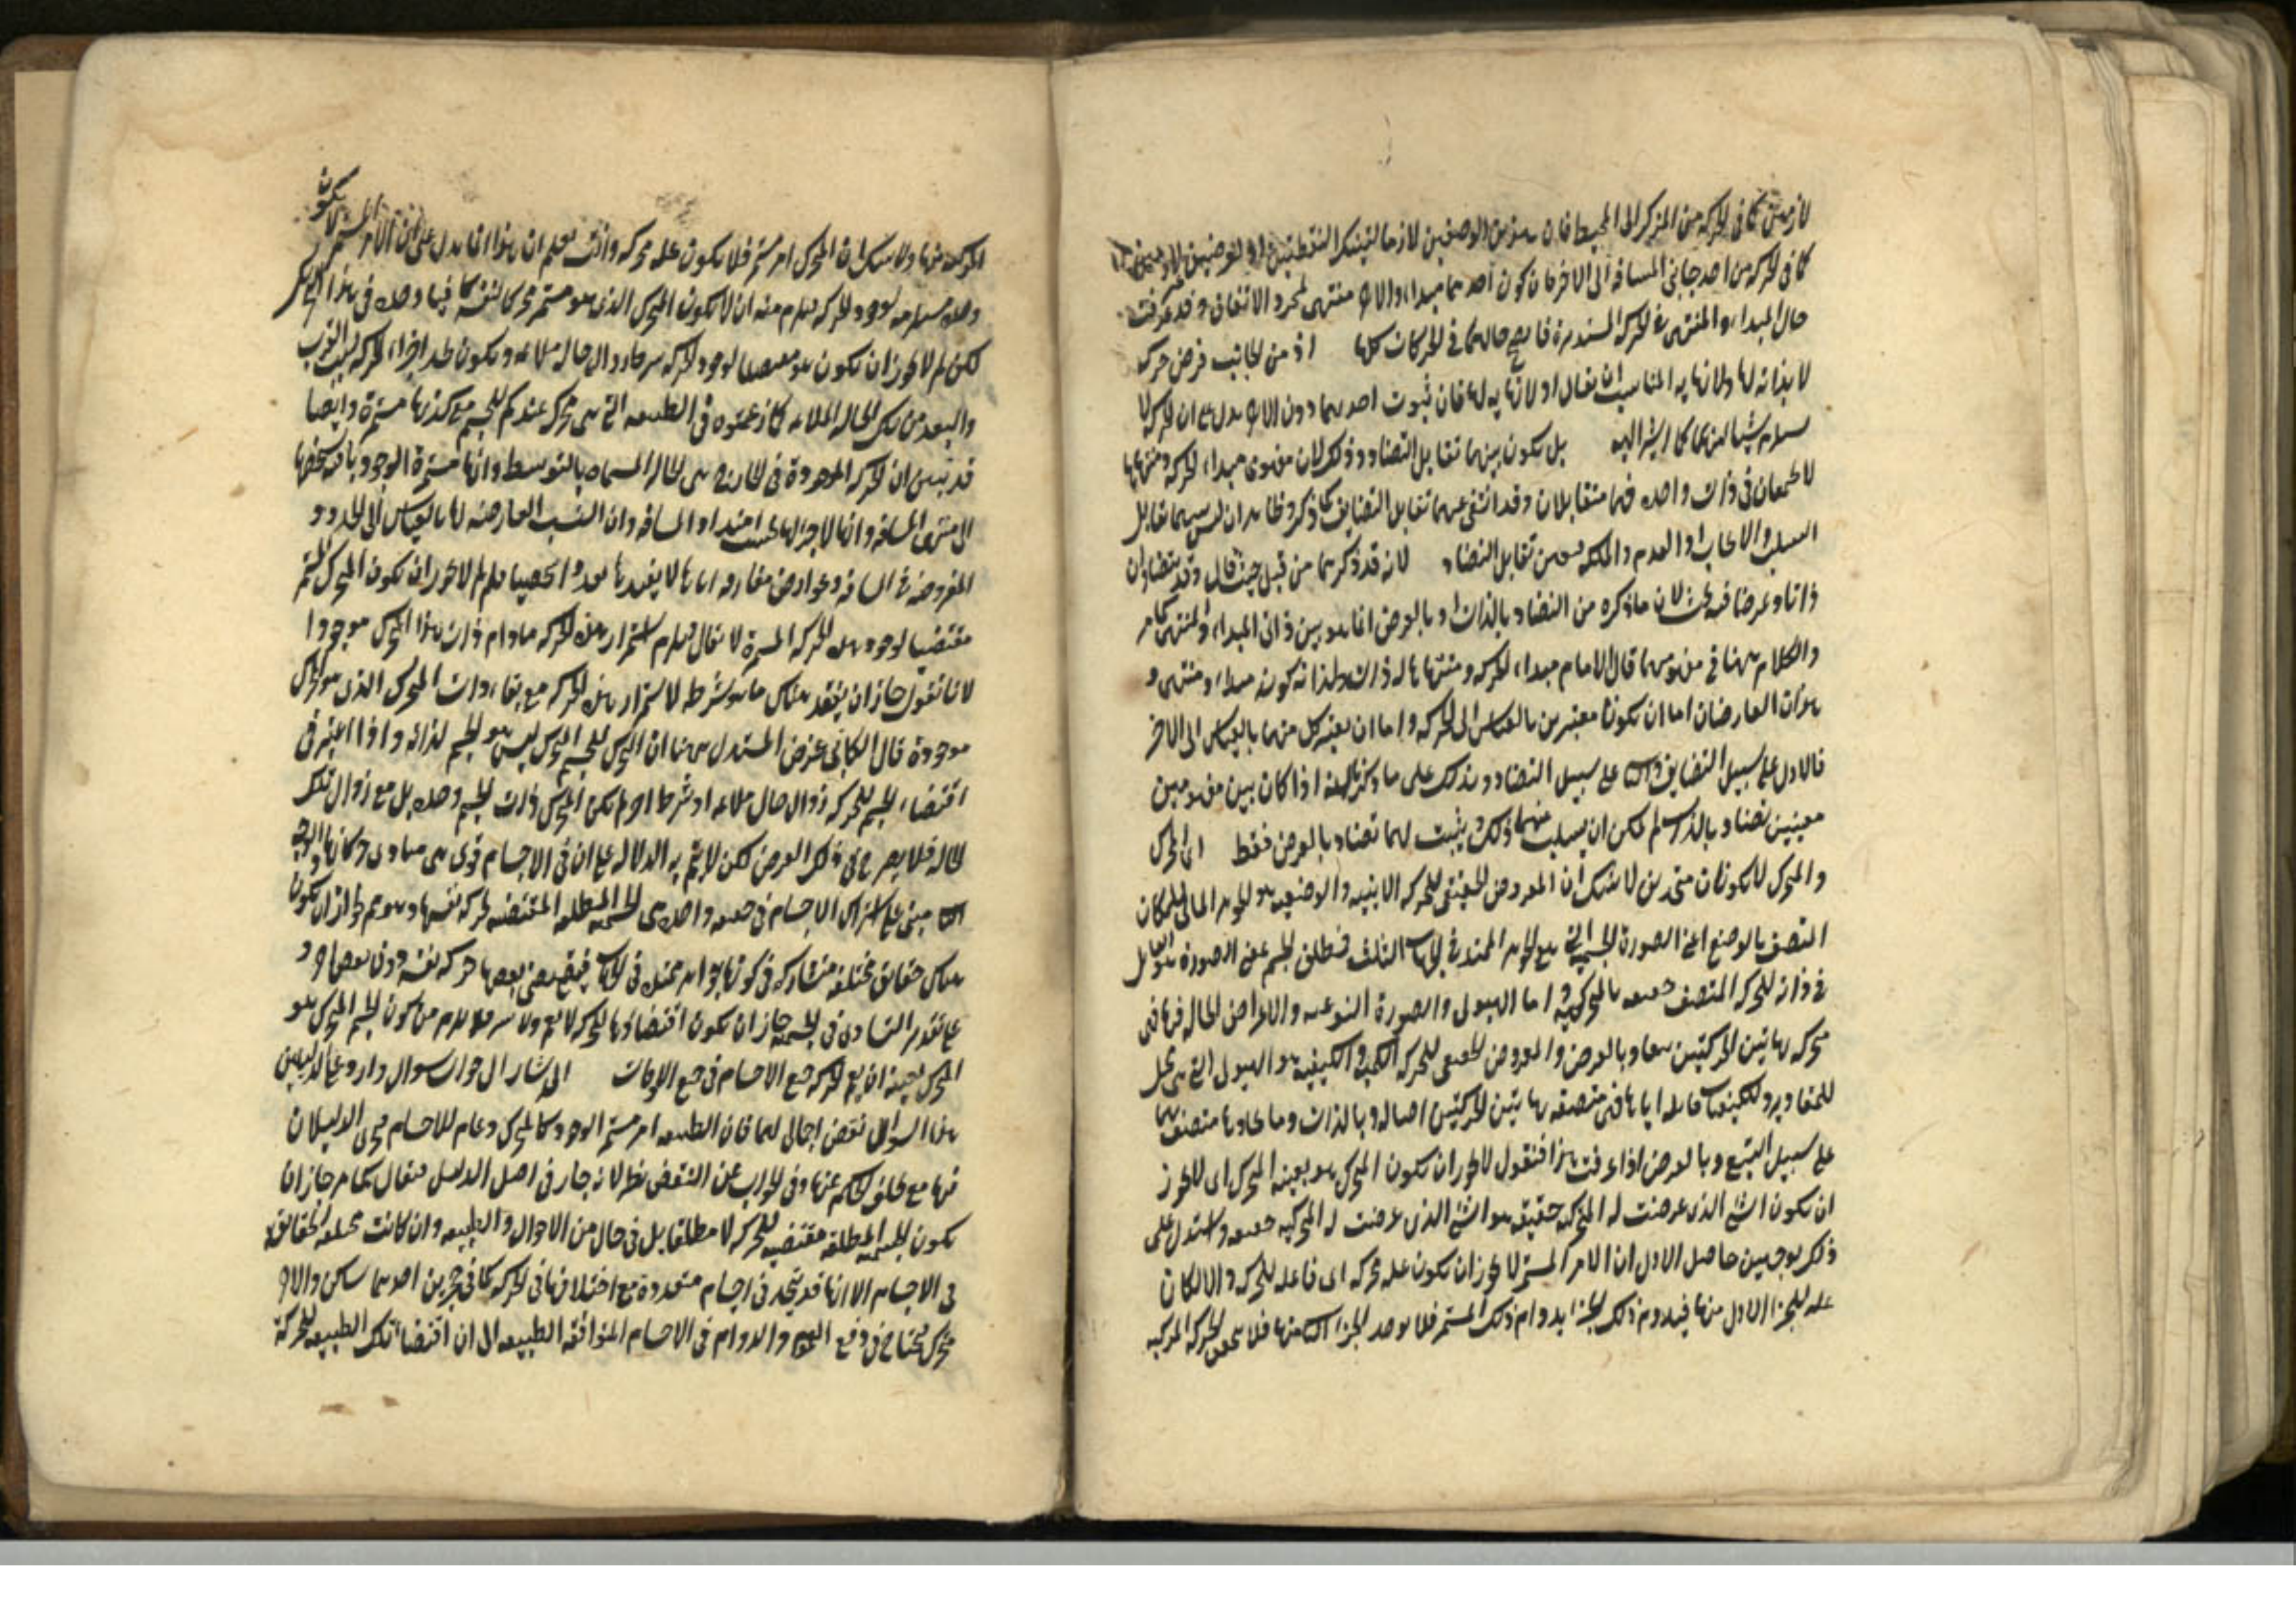 لازمين كما في الحركة من المركز الى المحيط فان هذين الوصفين لازما لتينك النقطتين او لغرضين
كما في الحركة من احد جانبي المسافة الى الاخر فان كون احدهما مبداء والاخر منتهى لمجرد الاتفاق وقد عرفت
حال المبداء والمنتهى في الحركة المستديرة حالهما في الحركات كلها اذ من الجانب فرض حركة
لا بذاته لها ولانهاية المناسب ان يقال او لانهاية لها فان ثبوت احدهما دون الاخر يدل على ان الحركة لا
يستلزم شيئا منهما كما اشير اليه بل يكون بينهما تقابل التضاد وذلك لان مفهومي مبداء الحركة ومنتهاها
لا يجتمعان في ذات واحدة فهما متقابلان وقد انتفى عنهما تقابل التضايف كما ذكر وظاهر ان ليس بينهما تقابل
السلب والايجاب او العدم والملكة تقابل التضاد لانه قد ذكرهما من قبل حيث قال وقد يتضادان
ذاتا وعرضا فيه بحث لان ما ذكره من التضاد بالذات او بالعرض انما هو بين ذاتي المبداء والمنتهى كما مر
والكلام ههنا في مفهوميهما قال الامام مبداء الحركة ومنتهاها له ذات كونه مبداء ومنتهى و
هذان العارضان اما ان يكونا معتبرين بالقياس الى الحركة واما ان يعتبر كل منهما بالقياس الى الاخر
فالاول على سبيل التضايف على سبيل التضاد اذا كان بين مفهومين
معينين تضاد بالذات لم يمكن ان يسلب منهما ذلك ويثبت لهما تضاد بالعرض فقط المحرك
والمتحرك لا يكونان متحدين لا شك ان المعروض الحقيقي للحركة الاينية والوضعية هو الجوهر المالئ للمكان
المتصف بالوضع اعني الصورة الجسمية التي هي الجوهر الممتد في الجهات الثلث فمطلق الجسم اعني الصورة هو القابل
في ذاته للحركة المتصف بالمتحركية واما الهيولى والصورة النوعية والاعراض الحالة فيها فهي
متحركة بهاتين الحركتين بالعرض والمعروض للحركة الكمية والكيفية هو الهيولى التي هي محل
للمقادير والكيفيات اياها فهي متصفة بهاتين الحركتين اصالة وبالذات وما عداها متصف بهما
على سبيل التبع وبالعرض اذا عرفت هذا فنقول لا يجوز ان يكون المتحرك هو بعينه المحرك اي لا يجوز
ان يكون الشئ الذي عرضت له المتحركية حقيقة هو الشئ الذي عرضت له المحركية واستدل على
ذلك بوجهين حاصل الاول ان الامر المستمر لا يجوز ان يكون علة محركة اي فاعلة للحركة والا لكان
علة للجزء الاول منها فيدوم ذلك الجزء بدوام ذلك المستمر فلا يوجد الجزء منها فلا الحركة المركبة
المركبة منها ولا شك ان المتحرك امر مستمر فلا يكون علة محركة وانت تعلم ان هذا انما يدل على ان الامر المستمر لا يكون
وحده مستلزمة لوجود الحركة فيلزم منه ان لا يكون المتحرك الذي هو مستمر محركا لنفسه كافيا وحده في هذا
لكن لم لا يجوز ان يكون هو مقتضيا لوجود الحركة زوال حالة ملائمة ويكون اجزاء الحركة القرب
والبعد من تلك الحالة الملائمة كما زعمتموه في الطبيعة التي هي محرك عندكم للجسم مع كونها مستمرة وايضا
قد تبين ان الحركة الموجودة في الخارج هي الحالة المسماة بالتوسط وانها مستمرة الوجود باقية بشخصها
الى منتهى المسافة وانها لا جزء لها بحسب امتداد المسافة وان النسب العارضة لها بالقياس الى الحدود
المفروضة في المسافة وعوارض مفارقة اياها لا يفيدها فلم لا يجوز ان يكون المتحرك المستمر
مقتضيا لوجود هذه الحركة المستمرة لا يقال فيلزم استمرار هذه الحركة ما دام ذات هذا المتحرك موجودا
لانا نقول جاز ان يفقد هناك ما هو شرط لاستمرار هذه الحركة مع بقاء ذات المتحرك الذي هو المحرك
موجودة قال الكاتبي غرض المستدل ههنا ان المحرك للجسم المتحرك ليس هو الجسم لذاته واذا اعتبر في
اقتضاء الجسم للحركة زوال حال ملائمة او شرط اخر لم يكن المحرك ذات الجسم وحده بل مع زوال تلك
الحالة فلا في ذلك الغرض لكن لا يتم به الدلالة على ان في الاجسام قوى هي مبادي حركاتها والوجه
مبني على اشتراك الاجسام في واحدة هي الجسمية المطلقة المقتضية لحركة نفسها وهو مم لجواز ان يكون
هناك حقائق مختلفة متشاركة في كونها جواهر ممتدة في الجهات فيقتضي بعضها حركة نفسه دون بعضها و
على تقدير التساوي في الجسمية جاز ان يكون اقتضاؤها للحركة فلا يلزم من كون الجسم المتحرك هو
المحرك بعينه ان يعم الحركة جميع الاجسام في جميع الاوقات اشار الى جواب سوال وارد على الدليلين
هذا السوال نقض اجمالي لهما فان الطبيعة امر مستمر الوجود كالمتحرك وعام للاجسام فجرى الدليلان
فيها مع تخلف الحكم عنها وفي الجواب عن النقض نظر لانه جار في اصل الدليل فيقال كما مر جاز ان
يكون الجسمية المطلقة مقتضية للحركة لا مطلقا بل في حال من الاحوال والطبيعة وان كانت مختلفة الحقائق
في الاجسام الا انها قد تتحد في اجسام متعددة مع اختلافها في الحركة كما في حجرين احدهما ساكن والاخر
متحرك فيحتاج في دفع العموم والدوام في الاجسام المتوافقة الطبيعة الى ان اقتضاء تلك الطبيعة للحركة